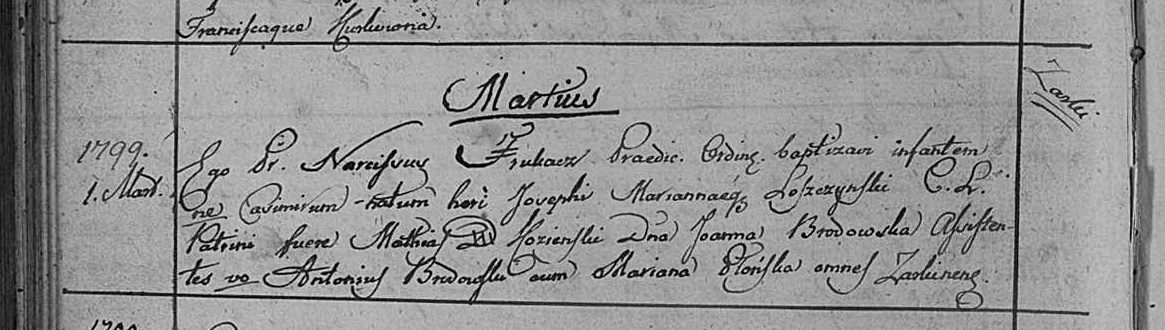 Franciscaque
Martius
Zaski
1799.
1. Mart.
Ego Fr. Narcissus Praedic. Ordinę. baptizavi infantem
ne Casimirum natum heri Josephi Mariannaeq Loszczynski C. L.
Patrini fuere Mathias D Kozienski Dna Joanna Brodowska Assisten-
tes vo Antonius Brodoski cum Mariana Płońska omnes